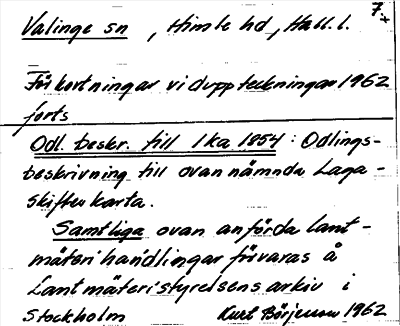 7.
Valinge sn , Himle hd, Hall. l.
Förkortningar vid uppteckningar 1962
forts
Odl. beskr. till lka 1854 : Odlings-
beskrivning till ovan nämnda Laga-
skifteskarta.
Samtliga ovan anförda lant-
mäterihandlingar förvaras å
Lantmäteristyrelsens arkiv i
Stockholm Kurt Börjesson 1962